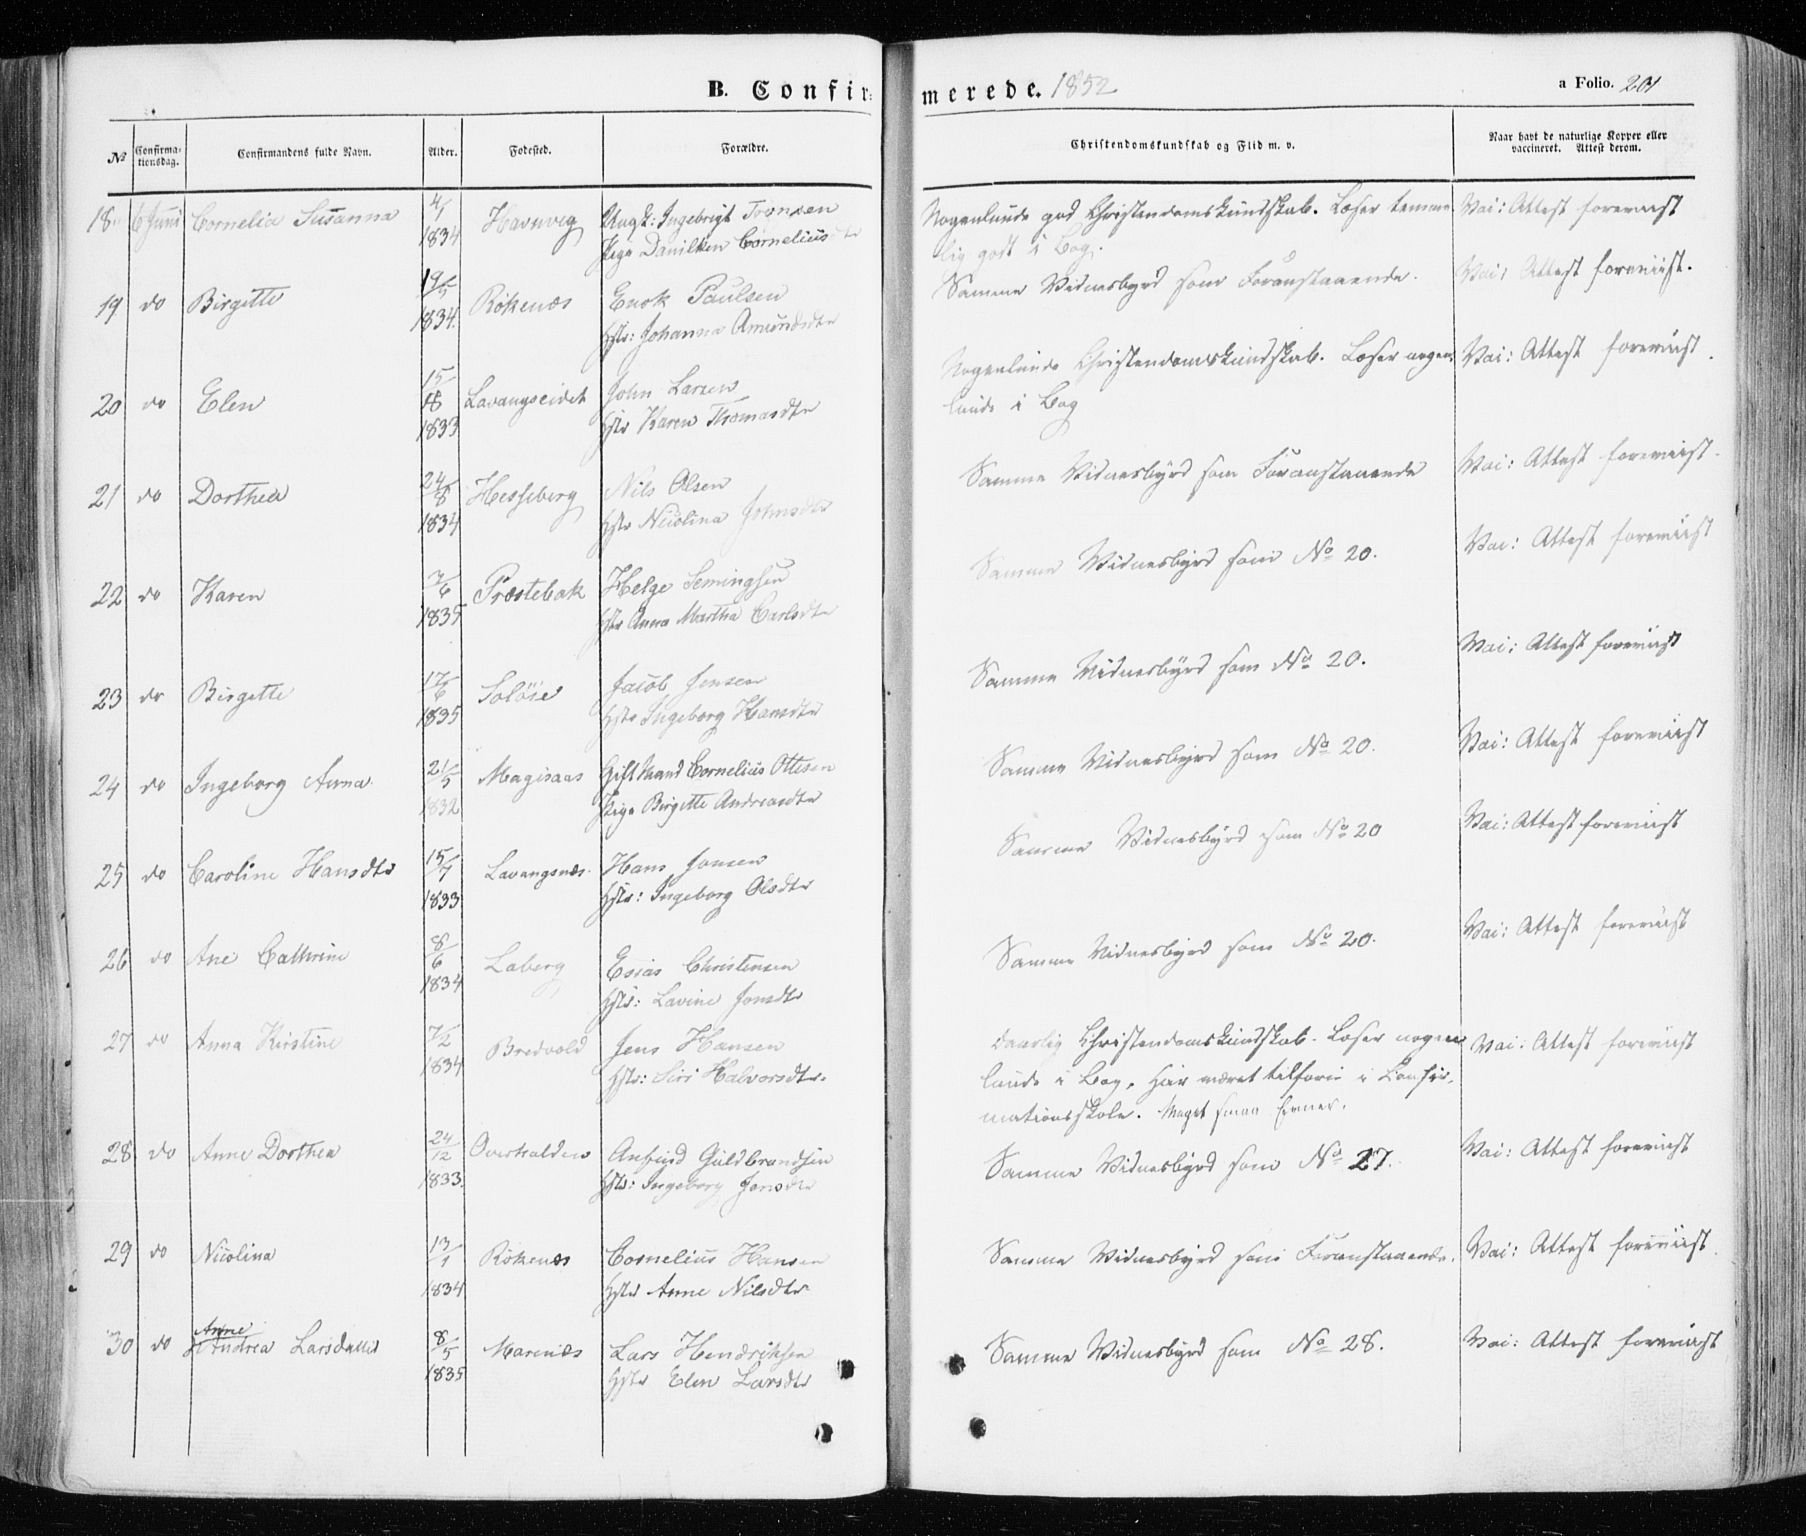 B. Confir-
merede. 1852
a Folio. 201
No
Confirma-
tionsdag.
Confirmandens fulde Navn.
Alder.
Fødested.
Forældre.
Christendomskundskab og Flid m. v.
Naar havt de naturlige Kopper eller
vaccineret. Attest derom.
18. 6 Juni Cornelia Susanna 4/1 1834 Havnvig
Ungk: Ingebrigt Tønsen
Pige Danilken Corneliusdtr
Nogenlunde god Christendomskundskab. Læser temme
lig godt i Bog.
Vai: Attest foreviist
19 do Birgette 19/5 1834. Rökenæs
Enok Paulsen
Hstr: Johanna Amundsdtr
Samme Vidnesbyrd som Foranstaaende.
Vai: Attest foreviist.
20 do Elen 15/18 1833 Lavangseidet
John Larsen
Hstr Karen Thomasdtr
Nogenlunde Christendomskundskab. Læser nogen
lunde i Bog
Vai: Attest foreviist.
21 do Dorthea 24/8 1834 Hesseberg
Nils Olsen
Hstr Nicolina Johnsdtr
Samme Vidnesbyrd som Foranstaaende
Vai: Attest foreviist.
22 do Karen 7/6 1835 Præstebak
Helge Semingsen
Hstr Anna Martha Carlsdtr
Samme Vidnesbyrd som No 20.
Vai: Attest foreviist
23 do Birgette 17/6 1835 Soløie
Jacob Jensen
Hstr Ingeborg Hansdtr
Samme Vidnesbyrd som No 20.
Vai: Attest foreviist
24 do Ingeborg Anna 21/5 1832 Magisaas
Gift Mand Cornelius Ottesen
Pige Birgitte Andreasdtr
Samme Vidnesbyrd som No 20.
Vai: Attest foreviist
25 do Caroline Hansdtr 15/7 1833 Lavangsnæs.
Hans Jonsen
Hstr: Ingeborg Olsdtr
Samme Vidnesbyrd som No 20
Vai: Attest foreviist
26 do Ane Cathrine 8/6 1834 Laberg
Esias Christensen
Hstr: Lavine Jonsdtr
Samme Vidnesbyrd som No 20.
Vai: Attest foreviist
27 do Anna Kirstine 7/2 1834 Bredvold
Jens Hansen
Hstr: Siri Halvorsdtr.
daarlig Christendomskundskab. Læser nogen
lunde i Bog. Har været tilforn i Confir-
mationsskole. Meget smaa Evner.
Vai: Attest foreviist
28 do Anne Dorthea 24/12 1833. Overhalden
Anfind Guldbrandsen
Hstr: Ingeborg Jonsdtr
Samme Vidnesbyrd som No 27.
Vai: Attest foreviist
29 do Nicolina 13/1 1834 Rökenæs
Cornelius Hansen
Hstr Anne Nilsdtr
Samme Vidnesbyrd som Foranstaaende.
Vai: Attest foreviist.
Anne
30 do Andrea Larsdatter 8/5 1835 Marenæs
Lars Hendriksen
Hstr Elen Larsdtr
Samme Vidnesbyrd som No 28.
Vai: Attest foreviist